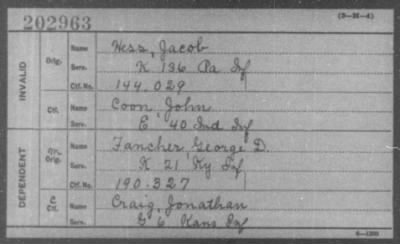 202963
(3—M—4)
INVALID
Orig.
Name Hess, Jacob
Serv. K 136 Pa Inf
Ctf. No. 144.029
Ctf.
Name Coon, John
Serv. E 40 Ind Inf
DEPENDENT
Orig.
Name Fancher, George D.
Serv. K 21 Ky Inf
Ctf. No. 190.327
C
Ctf.
Name Craig, Jonathan
Serv. G 6 Kans Inf